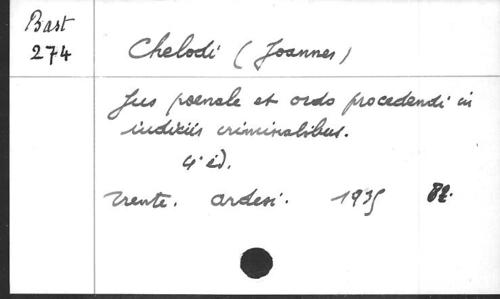 Bast
274
Chelodi (Joannes)
Jus poenale et ordo procedendi in
iudiciis criminalibus.
4e éd.
Trente. Ardesi. 1935 8°.